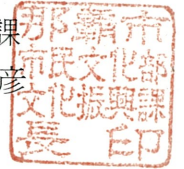 課
彦
那覇市
市民文化部
文化振興課
長印